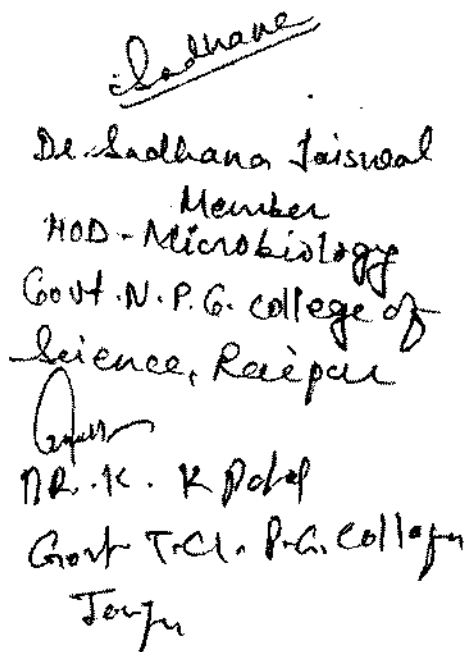 Sadhana
Dr. Sadhana Jaiswal
Member
HOD - Microbiology
Govt. N.P.G. college of
Science, Raipur
DR. K. K Patel
Govt T.C.L. P.G. College